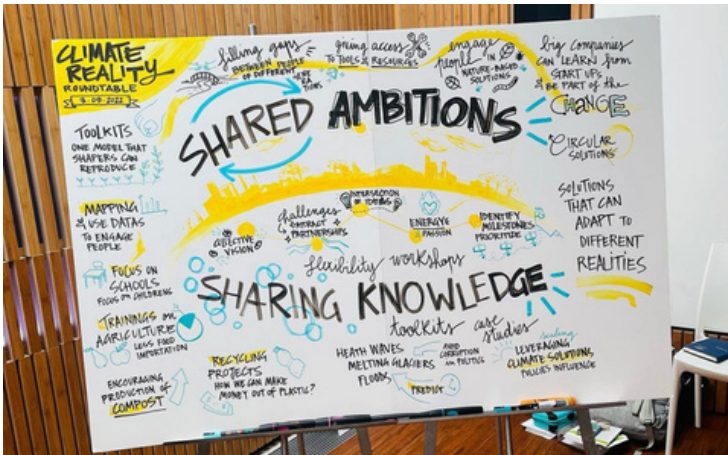 CLIMATE
REALITY
ROUNDTABLE
filling gaps
BETWEEN PEOPLE
OF DIFFERENT
giving access
TO TOOLS & RESOURCES
engage
people IN
NATURE-BASED
SOLUTIONS
big companies
CAN LEARN from
START UPS
& BE PART of the
CHANGE
CIRCULAR
SOLUTIONS
SOLUTIONS
THAT CAN
ADAPT TO
DIFFERENT
REALITIES
SHARED AMBITIONS
TOOLKITS
ONE MODEL THAT
SHAPERS CAN
REPRODUCE
MAPPING
& USE DATAS
TO ENGAGE
PEOPLE
FOCUS ON
SCHOOLS
FOCUS ON CHILDRENS
TRAININGS on
AGRICULTURE
LESS FOOD
IMPORTATION
ENCOURAGING
PRODUCTION OF
COMPOST
COLLECTIVE
VISION
challenges
ATTRACT
PARTNERSHIPS
INTERSECTION
OF IDEAS
ENERGY &
PASSION
IDENTIFY
MILESTONES
PRIORITIZE
flexibility workshops
SHARING KNOWLEDGE
toolkits case
studies
RECYCLING
PROJECTS
HOW WE CAN MAKE
MONEY OUT OF PLASTIC?
HEATH WAVES
MELTING GLACIERS
FLOODS
AVOID
CORRUPTION
POLITICS
PREDICT
scaling
LEVERAGING
CLIMATE SOLUTIONS
POLICIES INFLUENCE